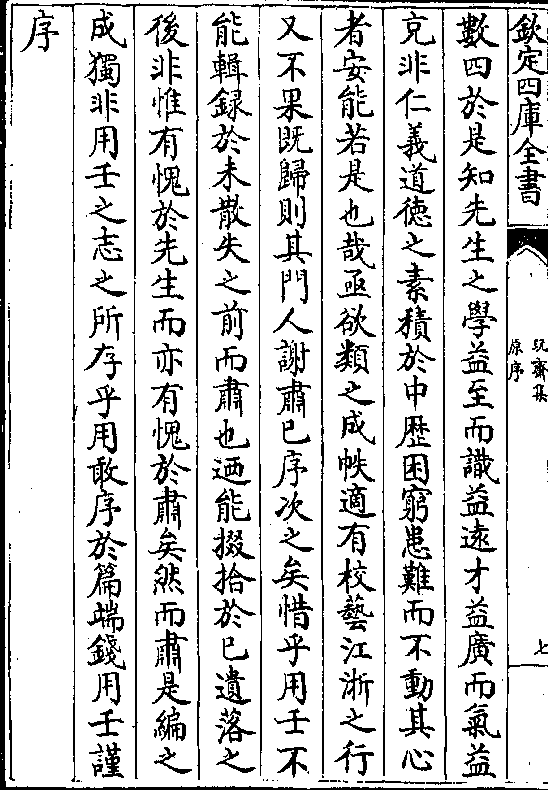 欽定四庫全書
玩齋集
原序
七
數四於是知先生之學益至而識益遠才益廣而氣益
充非仁義道德之素積於中歴困窮患難而不動其心
者安能若是也哉亟欲類之成帙適有校藝江浙之行
又不果既歸則其門人謝肅已序次之矣惜乎用壬不
能輯録於未散失之前而肅也迺能掇拾於已遺落之
後非惟有愧於先生而亦有愧於肅矣然而肅是編之
成獨非用壬之志之所存乎用敢序於篇端錢用壬謹
序